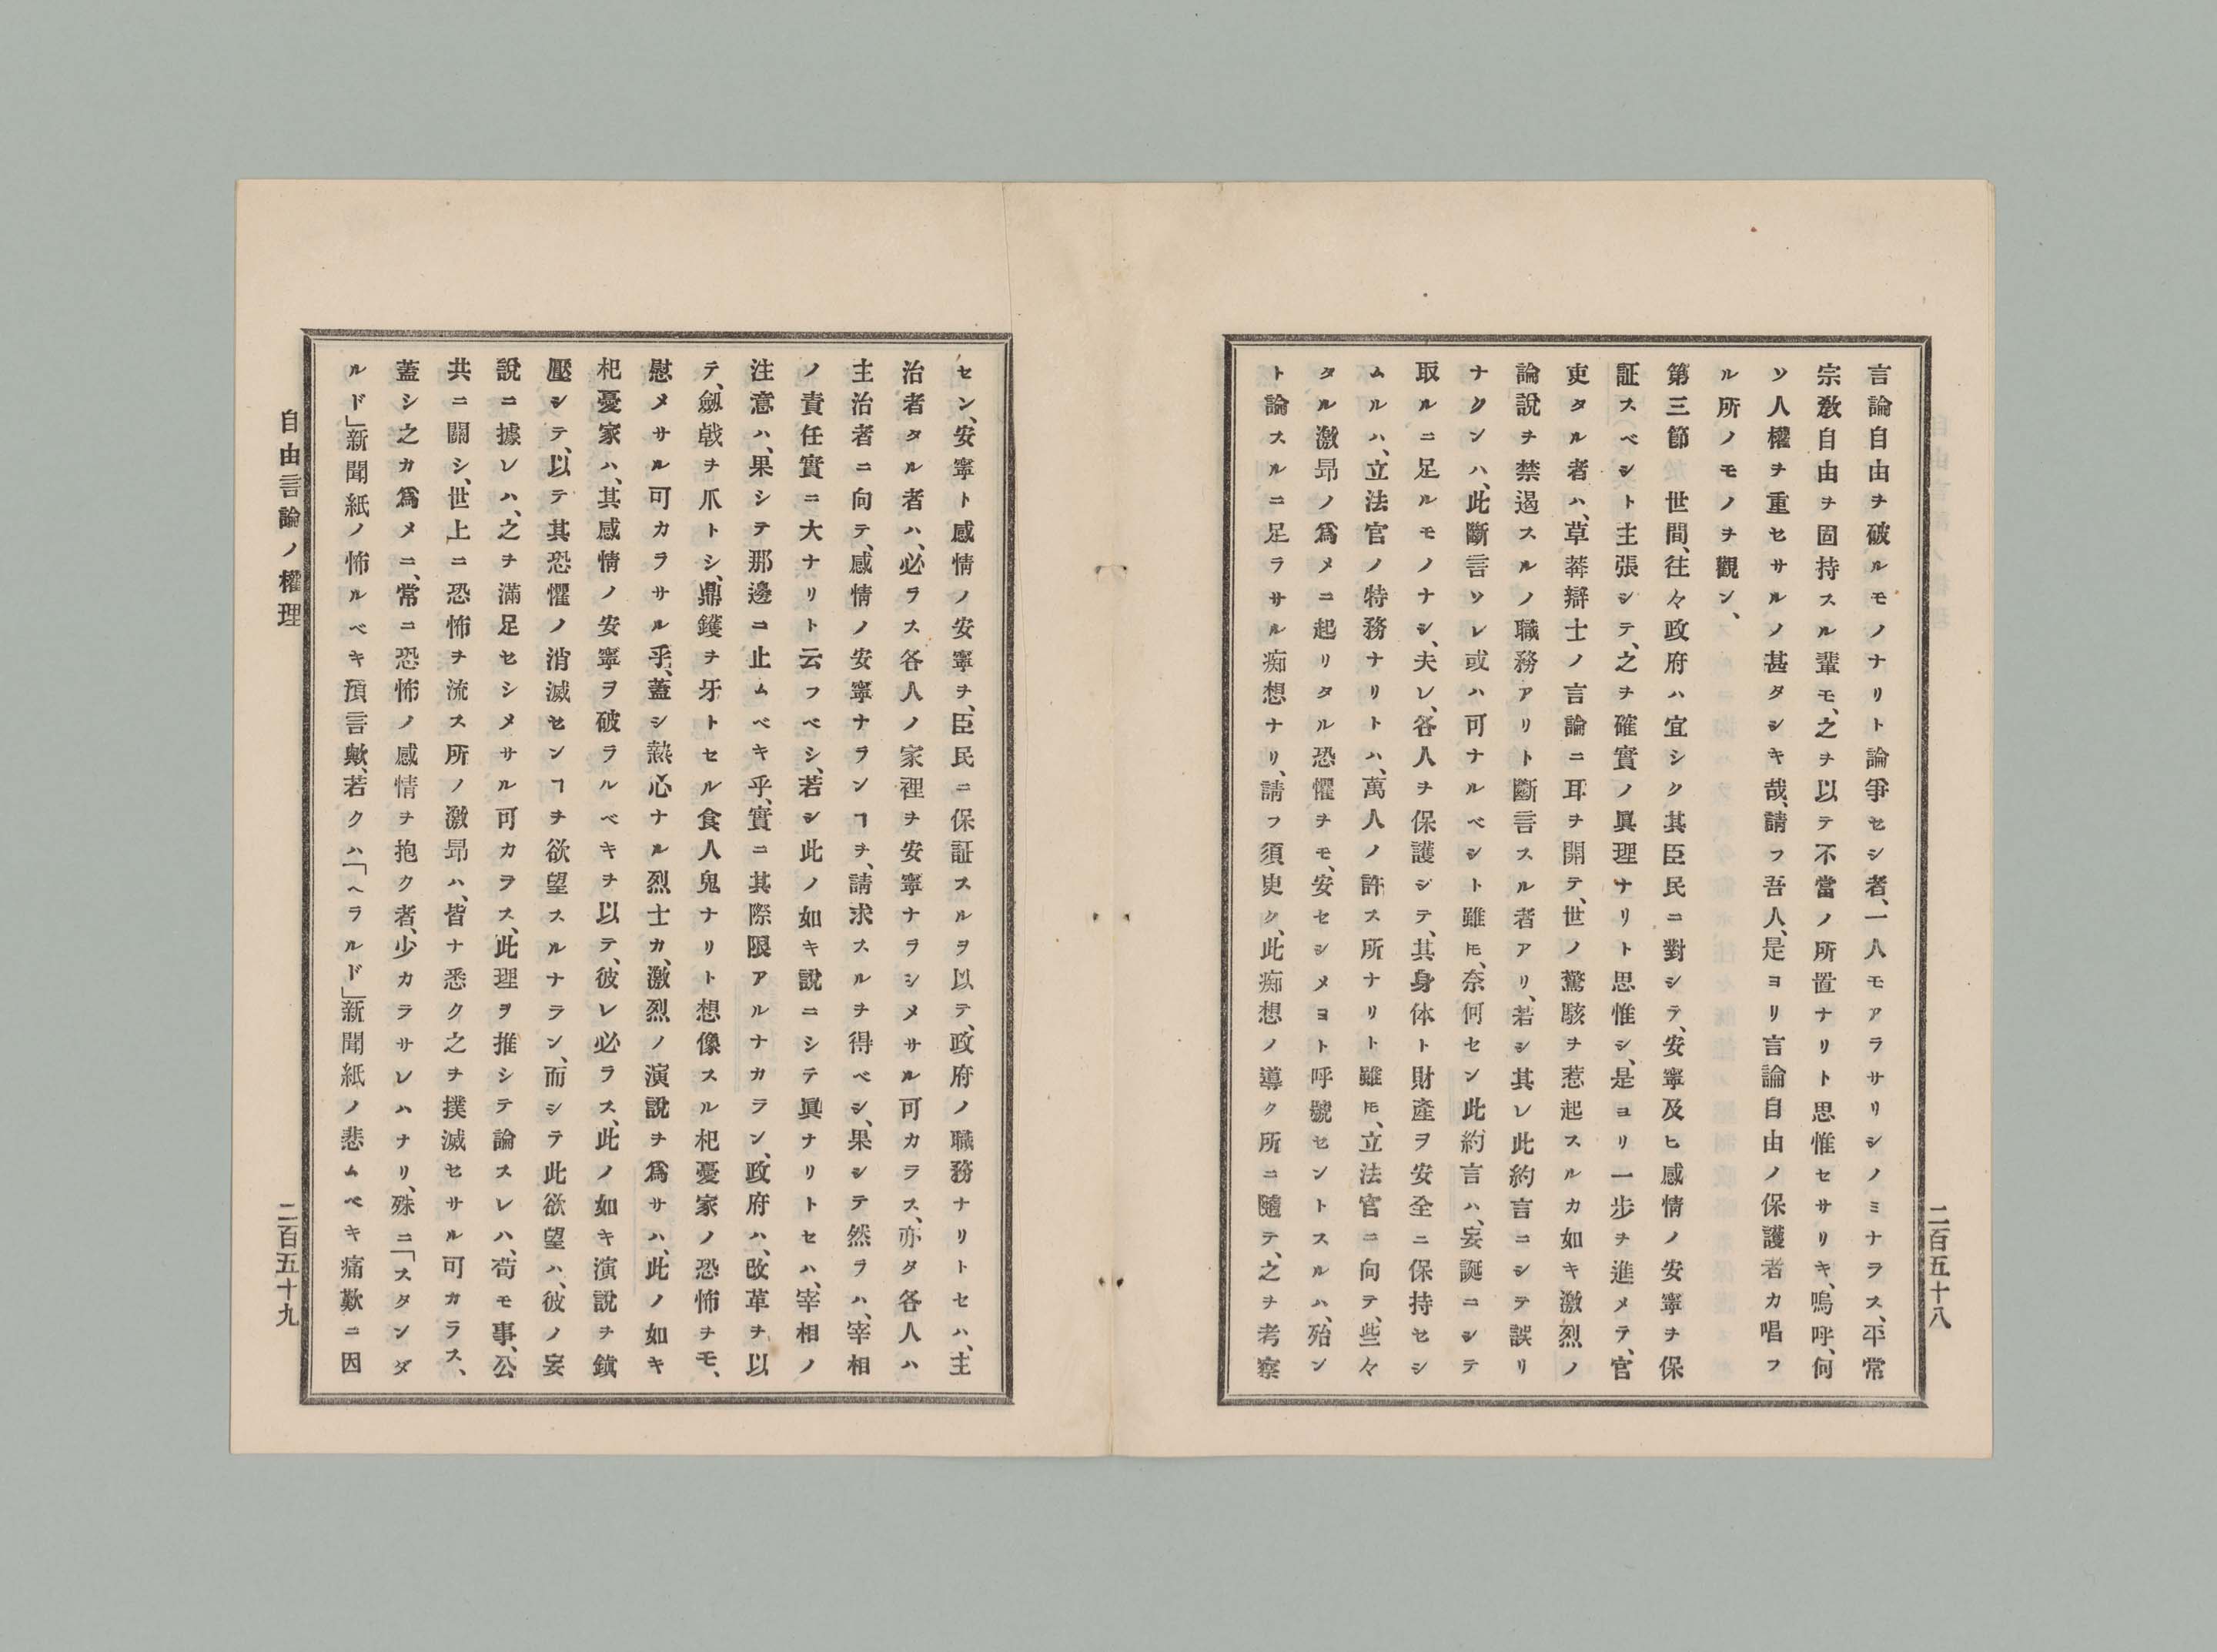 言論自由ヲ破ルモノナリト論爭セシ者、一人モアラサリシノミナラス、平常
宗敎自由ヲ固持スル輩モ、之ヲ以テ不當ノ所置ナリト思惟セサリキ、嗚呼、何
ソ人權ヲ重セサルノ甚タシキ哉、請フ吾人、是ヨリ言論自由ノ保護者カ唱フ
ル所ノモノヲ觀ン、
第三節　世間、往々政府ハ宜シク其臣民ニ對シテ、安寧及ヒ感情ノ安寧ヲ保
証スベシト主張シテ、之ヲ確實ノ眞理ナリト思惟シ、是ヨリ一步ヲ進メテ、官
吏タル者ハ、草莽辯士ノ言論ニ耳ヲ開テ、世ノ驚駭ヲ惹起スルカ如キ激烈ノ
論說ヲ禁遏スルノ職務アリト斷言スル者アリ、若シ其レ此約言ニシテ誤リ
ナクンハ、此斷言ソレ或ハ可ナルベシト雖𪜈、奈何セン此約言ハ、妄誕ニシテ
取ルニ足ルモノナシ、夫レ、各人ヲ保護シテ、其身体ト財產ヲ安全ニ保持セシ
ムルハ、立法官ノ特務ナリトハ、萬人ノ許ス所ナリト雖𪜈、立法官ニ向テ、些々
タル激昂ノ爲メニ起リタル恐懼ヲモ、安セシメヨト呼號セントスルハ、殆ン
ト論スルニ足ラサル痴想ナリ、請フ須臾ク、此痴想ノ導ク所ニ隨テ、之ヲ考察
二百五十八
セン、安寧ト感情ノ安寧ヲ、臣民ニ保証スルヲ以テ、政府ノ職務ナリトセハ、主
治者タル者ハ、必ラス各人ノ家裡ヲ安寧ナラシメサル可カラス、亦タ各人ハ
主治者ニ向テ、感情ノ安寧ナランヿヲ、請求スルヲ得ベシ、果シテ然ラハ、宰相
ノ責任實ニ大ナリト云フベシ、若シ此ノ如キ說ニシテ眞ナリトセハ、宰相ノ
注意ハ、果シテ那邊ニ止ムベキ乎、實ニ其際限アルナカラン、政府ハ、改革ヲ以
テ、劔戟ヲ爪トシ、鼎鑊ヲ牙トセル食人鬼ナリト想像スル杞憂家ノ恐怖ヲモ、
慰メサル可カラサル乎、蓋シ熱心ナル烈士カ、激烈ノ演說ヲ爲サハ、此ノ如キ
杞憂家ハ、其感情ノ安寧ヲ破ラルベキヲ以テ、彼レ必ラス、此ノ如キ演說ヲ鎭
壓シテ、以テ其恐懼ノ消滅センヿヲ欲望スルナラン、而シテ此欲望ハ、彼ノ妄
說ニ據レハ、之ヲ滿足セシメサル可カラス、此理ヲ推シテ論スレハ、苟モ事、公
共ニ關シ、世上ニ恐怖ヲ流ス所ノ激昂ハ、皆ナ悉ク之ヲ撲滅セサル可カラス、
蓋シ之カ爲メニ、常ニ恐怖ノ感情ヲ抱ク者、少カラサレハナリ、殊ニ「スタンダ
ルド」新聞紙ノ怖ルベキ預言歟、若クハ「ヘラルド」新聞紙ノ悲ムベキ痛歎ニ因
自由言論ノ權理
二百五十九